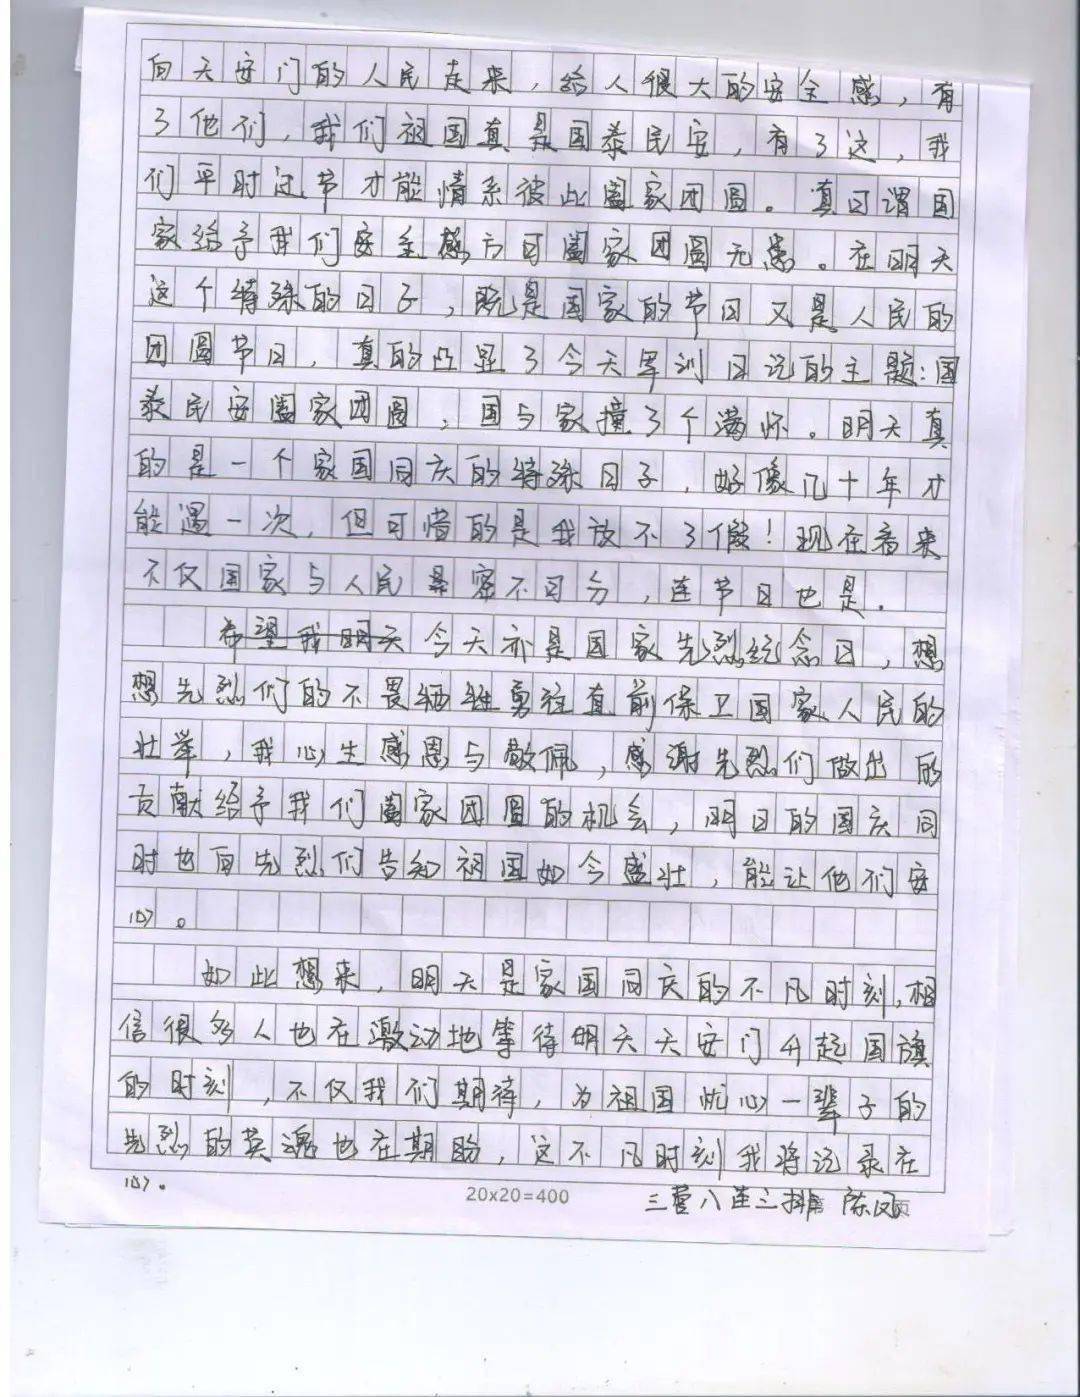 向天安门的人民走来，给人很大的安全感，有
了他们，我们祖国真是国泰民安，有了这，我
们平时过节才能情系彼此阖家团圆。真可谓国
家给予我们安全感方可阖家团圆无患。在明天
这个特殊的日子，既是国家的节日又是人民的
团圆节日，真的凸显了今天军训日记的主题：国
泰民安阖家团圆，国与家撞了个满怀。明天真
的是一个家国同庆的特殊日子，好像几十年才
能遇一次，但可惜的是我放不了假！现在看来
不仅国家与人民紧密不可分，连节日也是．
希望我明天今天亦是国家先烈纪念日，想
想先烈们的不畏牺牲勇往直前保卫国家人民的
壮举，我心生感恩与敬佩，感谢先烈们做出的
贡献给予我们阖家团圆的机会，明日的国庆同
时也向先烈们告知祖国如今盛壮，能让他们安
心。
如此想来，明天是家国同庆的不凡时刻，相
信很多人也在激动地等待明天天安门升起国旗
的时刻，不仅我们期待，为祖国忧心一辈子的
先烈的英魂也在期盼，这不凡时刻我将记录在
心。
20x20=400
三营八连三排 陈